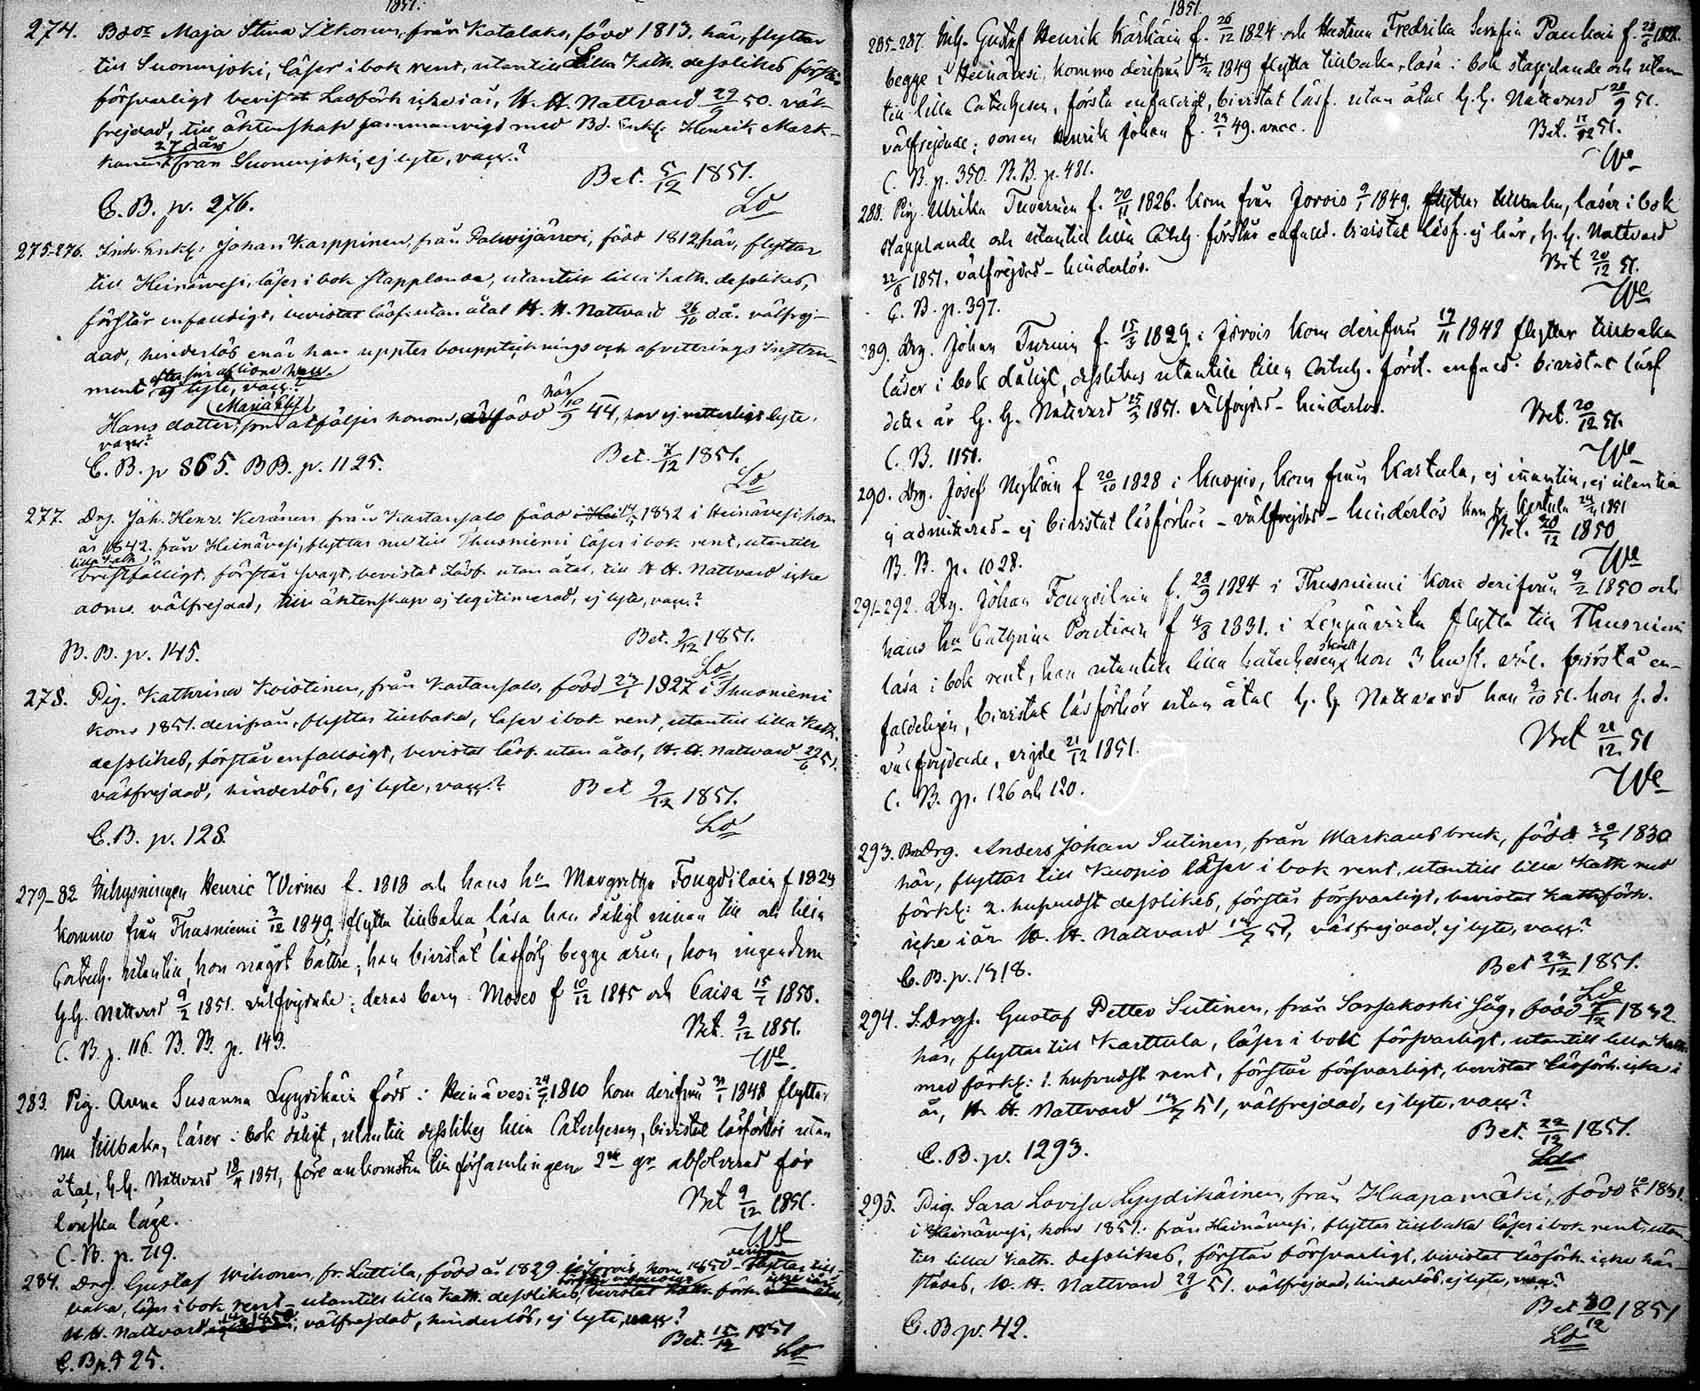 1851.
274. Bdor Maja Stina Itkonen, från Katalaks, född 1813. här, flyttar
till Suonenjoki, läser i bok rent, utantill Lilla Kath. desslikes förstår
försvarligt bevistat Läsförh icke i år, H. H. Nattvard 29/9 50. väl-
frejdad, till äktenskap sammanvigd med Bd. Enkl. Henrik Mark-
kanen 27 dås från Suonenjoki, ej lyte, vacc.?
Bet. 5/12 1851.
C. B. p. 276.
Lo
275-276. Inh. Enkl. Johan Karppinen, från Palvijärvi, född 1812 här, flyttar
till Heinävesi, läser i bok stapplande, utantill lilla Kath. desslikes,
förstår enfaldigt, bevistat läsf. utan åtal H. H. Nattvard 26/10 d.å. välfrej-
dad, hinderlös enär han uppter bouppteknings och afvittrings Instru-
ment ej lyte, vacc.?
Hans dotter Maria Elis. som åtföljer honom, född här 10/9 44, har ej lyte.
vacc?
C. B. p 865. BB. p. 1125.
Bet. 7/12 1851.
Lo
277. Drg. Joh. Henr. Keränen från Kartansalo född 1832 i Heinävesi, kom
år 1842. från Heinävesi, flyttar nu till Thusniemi läser i bok rent, utantill
lilla Kath.
bristfälligt, förstår svagt, bevistat Läsf. utan åtal, till H. H. Nattvard icke
adm. välfrejdad, till äktenskap ej legitimerad, ej lyte, vacc.?
B. B. p. 145.
Bet. 9/12 1851.
Lo
278. Pig. Kathrina Koistinen, från Kartansalo, född 1827 i Thusniemi
kom 1851. derifrån, flyttar tillbaka, läser i bok rent, utantill lilla Kath.
desslikes, förstår enfaldigt, bevistat läsf. utan åtal, H. H. Nattvard 22/6 51.
välfrejdad, hinderlös, ej lyte, vacc.?
Bet 9/12 1851.
C. B. p. 128.
Lo
279-82 Inhysningen Henric Wirnes f. 1818 och hans hu Margretha Tougdilain f 1824
kommo från Thusniemi 3/12 1849. flytta tillbaka, läsa han dåligt innan till och lilla
Catech. utantill, hon något bättre, han bivistat läsförh begge åren, hon ingendera
H.H. Nattvard 9/2 1851. välfrejdade; deras barn Moses f 10/12 1845 och Caisa 15/7 1850.
C. B. p. 116. B. B. p. 143.
Bet. 9/12 1851.
We
283. Pig. Anna Susanna Lyydikäin född i Heinävesi 1810 kom derifrån 1848 flyttar
nu tillbaka, läser i bok dåligt, utantill desslikes lilla Catechesen, bivistat läsförhör utan
åtal, H.H. Nattvard 18/4 1851, före ankomsten till församlingen 2ne gr absolverad för
lönska läge.
Bet 9/12 1851.
We
C. B. p. 719.
284. Drg. Gustaf Wihonen, fr. Luttila, född år 1829. i Jorois, kom 1850 flyttar till-
baka, läser i bok rent, utantill lilla Kath. desslikes, bevistat förh
H.H. Nattvard, välfrejdad, hinderlös, ej lyte, vacc?
Bet. 15/12 1851
C. B p. 525.
Lo
1851.
285-287. Inh. Gustaf Henrik Kärkäin f. 26/12 1824 och Hustrun Fredrika Serafia Paukain f.
begge i Heinävesi, kommo derifrån 1849 flytta tillbaka, läsa i bok stapplande och utan-
till lilla Catechesen, förstå enfaldigt, bivistat läsf. utan åtal H.H. Nattvard 28/9 51.
välfrejdade; sonen Henrik Johan f. 23/1 49. vacc.
Bet. 17/12 51.
C. B. p. 350. B.B. p. 481.
We
288. Pig. Ulrika Tuverien f. 30/11 1826. kom från Jorois 1849. flyttar tillbaka, läser i bok
stapplande och utantill lilla Catech. förstår enfald. bivistat läsf. ej här, H.H. Nattvard
22/6 1851. välfrejdad - hinderlös.
Bet 20/12 51.
C. B. p. 397.
We
289. Drg. Johan Turnin f. 15/3 1829. i Jorois kom derifrån 1848 flyttar tillbaka
läser i bok dåligt, desslikes utantill lilla Catech. först. enfald. bivistat läsf
detta år H.H. Nattvard 1851. välfrejdad - hinderlös.
Bet. 20/12 51.
C. B. 1151.
We
290. Drg. Josef Nykäin f 20/10 1828 i Kuopio, kom från Kartula, ej innantill, ej utantill
ej admitterad - ej bivistat läsförhör - välfrejdad - hinderlös kom fr. Kartula 1851
Bet. 20/12 1850
B. B. p. 1028.
We
291-292. Drg. Johan Tougdilain f. 28/9 1824 i Thusniemi kom derifrån 9/2 1850 och
hans hu Cathrina Poutiain f 4/8 1831. i Leppävirta flytta till Thusniemi
läsa i bok rent, han utantill lilla Catechesen, hon 3 hufst. väl. förstå en-
faldeligen, bivistat läsförhör utan åtal H. H. Nattvard han 9/10 51. hon s. d.
välfrejdade, vigde 21/12 1851.
Bet 21/12 51
C. B. p. 126 och 120.
We
293. Drg. Anders Johan Sutinen, från Markans bruk, född 1830
här, flyttar till Kuopio läser i bok rent, utantill lilla Kath med
förkl: 2. hufvudst desslikes, förstår försvarligt, bevistat förh.
icke i år H. H. Nattvard 51, välfrejdad, ej lyte, vacc?
C. B. p. 1418.
Bet 22/12 1851.
Lo
294. S. Drgs. Gustaf Petter Sutinen, från Sorsakoski Såg, född 1832
här, flyttar till Karttula, läser i bok försvarligt, utantill lilla Kath.
med förkl: 1. hufvudst rent, förstår försvarligt, bevistat läsförh. icke i
år, H. H. Nattvard 51, välfrejdad, ej lyte, vacc?
Bet. 22/12 1851.
C. B. p. 1293.
Lo
295. Pig. Sara Lovisa Lyydikäinen, från Haapamäki, född 1831
i Heinävesi, kom 1851. från Heinävesi, flyttar tillbaka läser i bok rent, utan-
till lilla Kath. desslikes, förstår försvarligt, bevistat läsförh. icke här-
städes, H. H. Nattvard 51. välfrejdad, hinderlös, ej lyte, vacc?
Bet 30/12 1851
C. B p. 42.
Lo